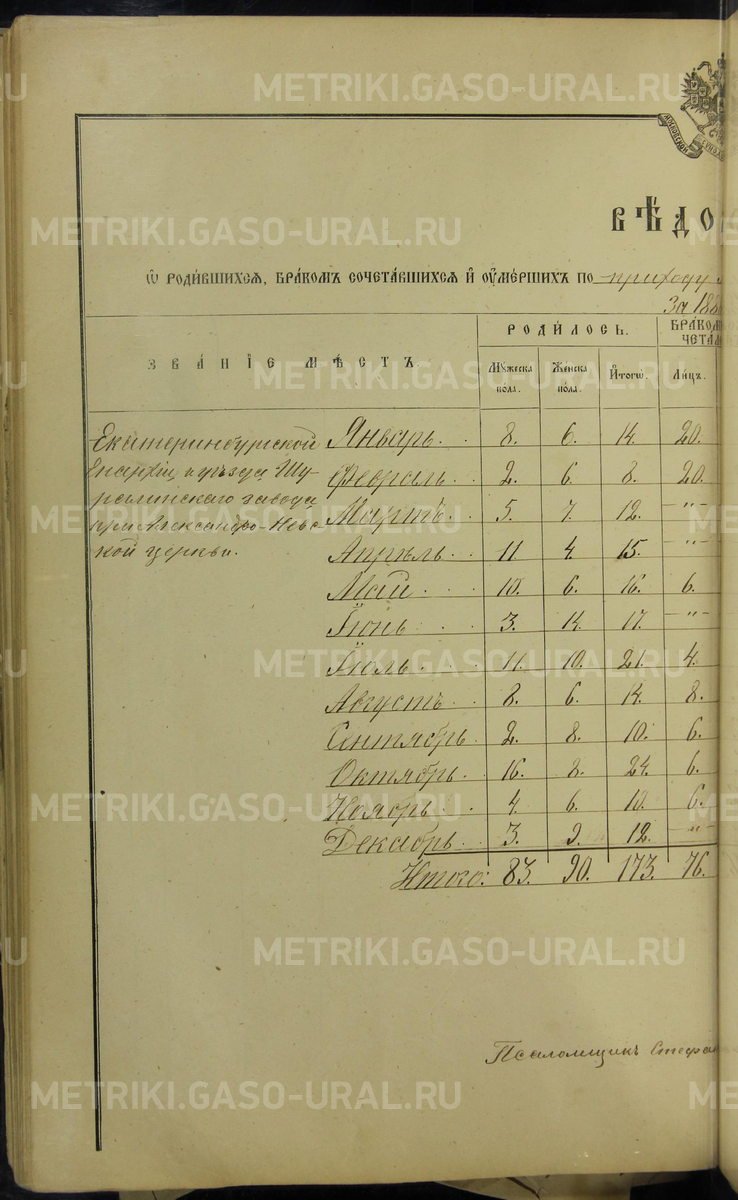 METRIKI.GASO-URAL.RU
МОСКОВСКОЙ
СѴНОД
ВѢДО
Ѡ РОДИ́ВШИХСѦ, БРА́КОМЪ СОЧЕТА́ВШИХСѦ И҆ ОУ҆МЕ́РШИХЪ ПО приходу
За 188
ЗВА́НІЕ МѢ́СТЪ.
РОДИ́ЛОСЬ.
БРА́КОМ
ЧЕТА́
Мꙋ́жеска по́ла.
Же́нска по́ла.
И҆тогѡ̀.
Ли́цъ.
Екатеринбургской
Епархіи и уѣзда Шу-
ралинскаго завода
при Александро-Невс-
кой церкви.
Январь. . 8. 6. 14. 20.
Февраль. . 2. 6. 8. 20.
Мартъ. . 5. 7. 12. -"-
Апрѣль. . 11. 4. 15. -"-
Май . . . 10. 6. 16. 6.
Іюнь . . . 3. 14. 17. -"-
Іюль. . . 11. 10. 21. 4.
Августъ. . 8. 6. 14. 8.
Сентябрь. . 2. 8. 10. 6.
Октябрь. . 16. 8. 24. 6.
Ноябрь. . 4. 6. 10. 6.
Декабрь. . 3. 9. 12. -"-
Итого: 83. 90. 173. 76.
Псаломщикъ Стефан